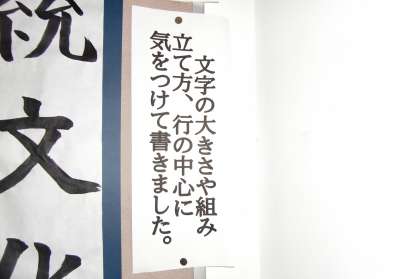 文字の大きさや組み
立て方、行の中心に
気をつけて書きました。
統文化